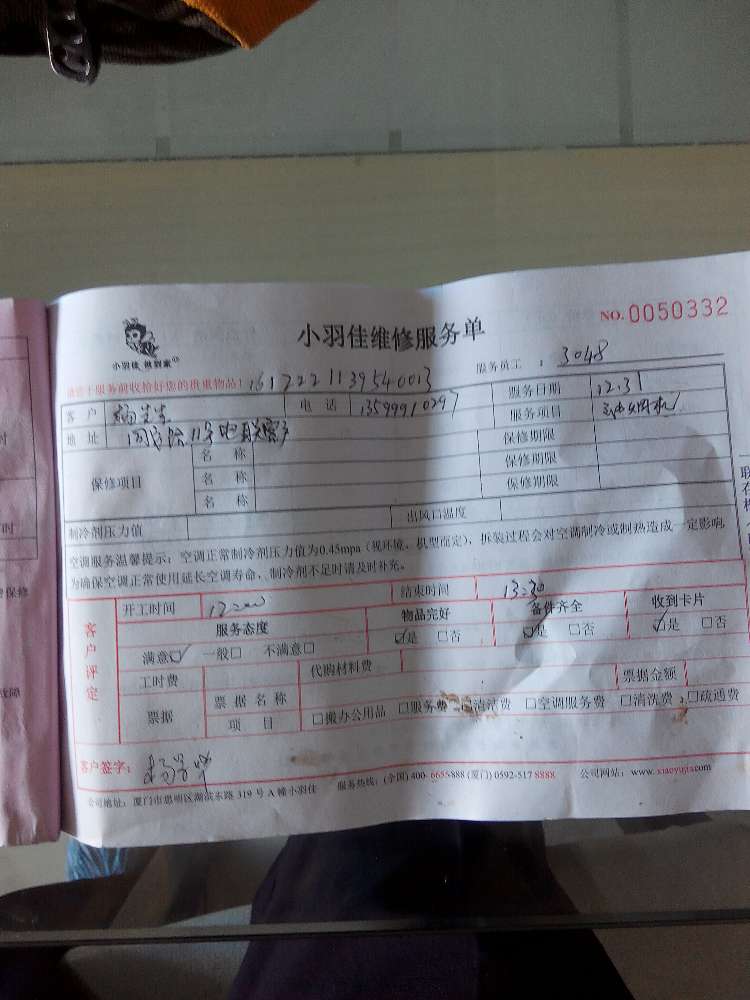 小羽佳 做到家
小羽佳维修服务单
NO. 0050332
服务员工 : 3048
请您于服务前收拾好您的贵重物品! 1617222113954 0013
客户 杨先生 电话 13599910297 服务日期 12.31
地址 服务项目
保修项目 名称 保修期限
名称 保修期限
名称 保修期限
制冷剂压力值 出风口温度
空调服务温馨提示:空调正常制冷剂压力值为0.45mpa(视环境、机型而定),拆装过程会对空调制冷或制热造成一定影响
为确保空调正常使用延长空调寿命,制冷剂不足时请及时补充。
客户评定
开工时间 12:00 结束时间 13:30
服务态度 物品完好 备件齐全 收到卡片
满意☑ 一般□ 不满意□ ☑是 □否 ☑是 □否 ☑是 □否
工时费 代购材料费 票据金额
票据 票据名称
项目 □搬办公用品 □服务费 □清洁费 □空调服务费 □清洗费 □疏通费
客户签字:
公司地址:厦门市思明区湖滨东路 319 号 A 幢小羽佳 服务热线:(全国) 400-6655888 (厦门) 0592-517 8888 公司网站:www.xiaoyujia.com